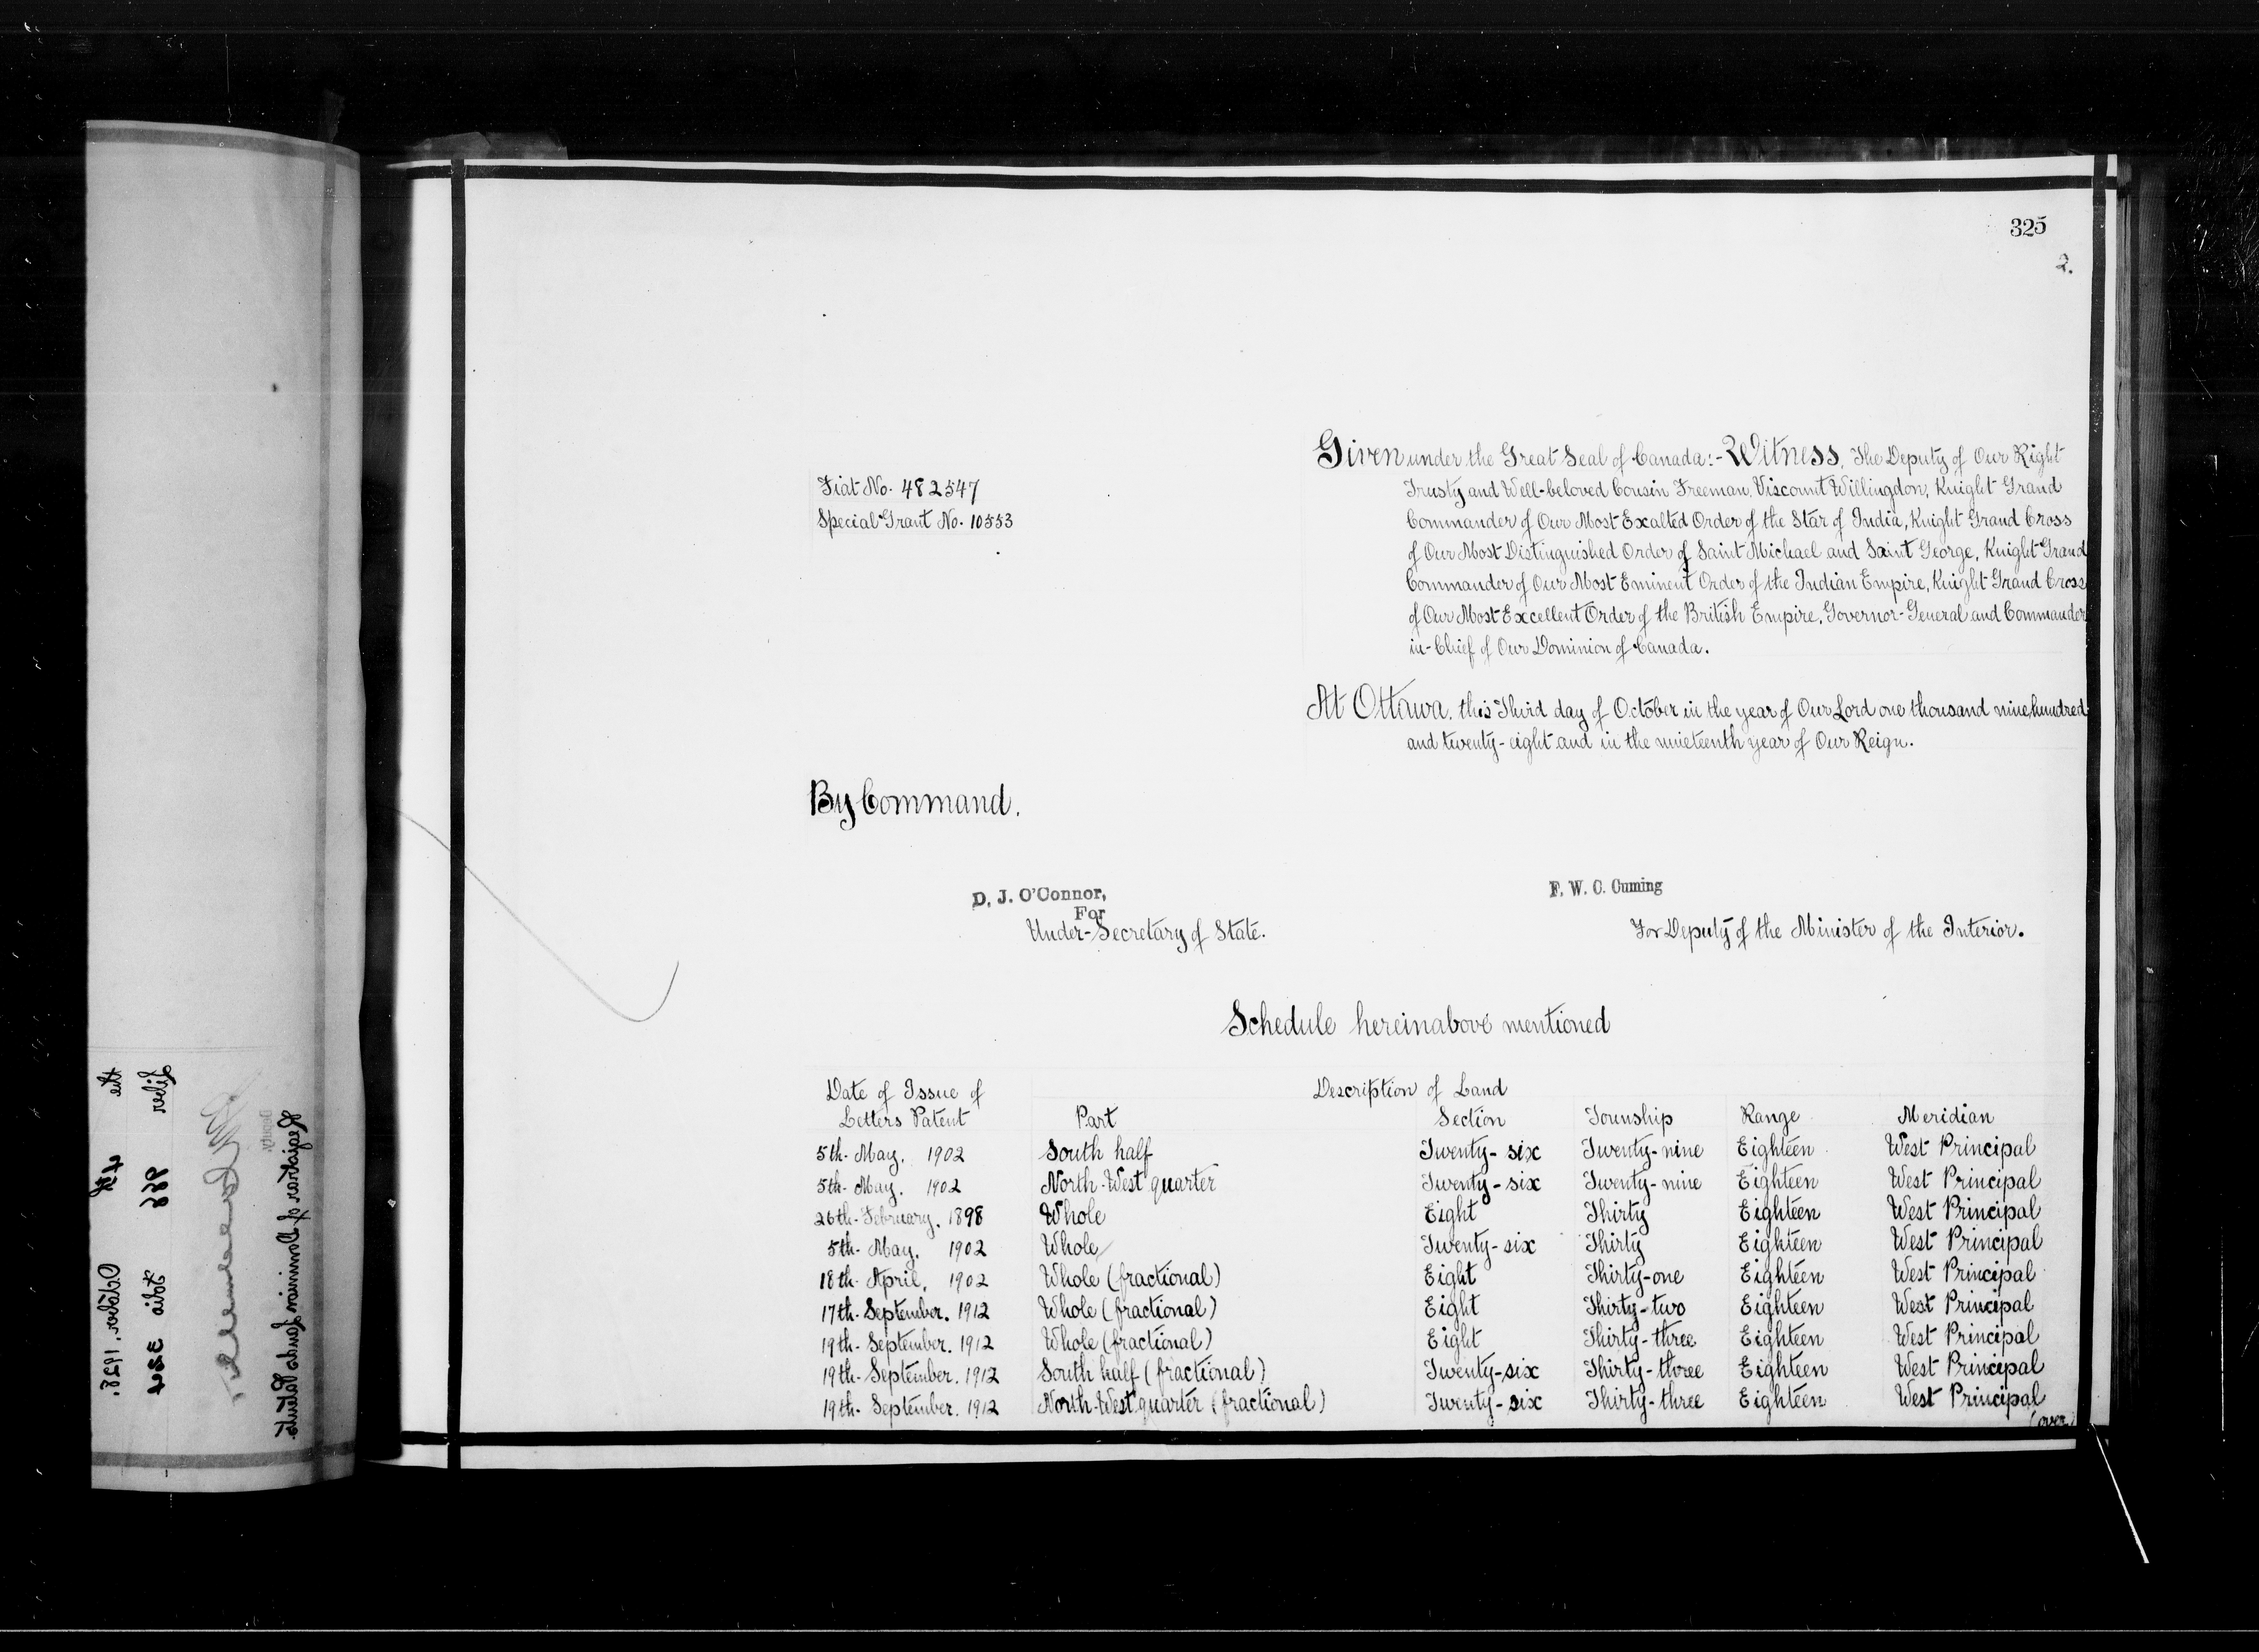 325
2.
Given under the Great Seal of Canada:- Witness, The Deputy of Our Right
Trusty and Well-beloved Cousin Freeman, Viscount Willingdon, Knight Grand
Commander of Our Most Exalted Order of the Star of India, Knight Grand Cross
of Our Most Distinguished Order of Saint Michael and Saint George, Knight Grand
Commander of Our Most Eminent Order of the Indian Empire, Knight Grand Cross
of Our Most Excellent Order of the British Empire, Governor-General and Commander
in-Chief of Our Dominion of Canada.
Fiat No. 482547
Special Grant No. 10553
At Ottawa, this Third day of October in the year of Our Lord one thousand nine hundred
and twenty-eight and in the nineteenth year of Our Reign.
By Command.
D. J. O'Connor,
For
Under-Secretary of State.
F. W. C. Cuming
For Deputy of the Minister of the Interior.
Schedule hereinabove mentioned
Date of Issue of Description of Land
Letters Patent Part Section Township Range Meridian
5th. May. 1902 South half Twenty-six Twenty-nine Eighteen West Principal
5th. May. 1902 North-West quarter Twenty-six Twenty-nine Eighteen West Principal
26th. February. 1898 Whole Eight Thirty Eighteen West Principal
5th. May. 1902 Whole Twenty-six Thirty Eighteen West Principal
18th. April. 1902 Whole (fractional) Eight Thirty-one Eighteen West Principal
17th. September. 1912 Whole (fractional) Eight Thirty-two Eighteen West Principal
19th. September. 1912 Whole (fractional) Eight Thirty-three Eighteen West Principal
19th. September. 1912 South half (fractional) Twenty-six Thirty-three Eighteen West Principal
19th. September. 1912 North-West quarter (fractional) Twenty-six Thirty-three Eighteen West Principal
(over)
the 4th October, 1928.
Liber 966 folio 324
Deputy
Registrar of Dominion Lands Patents.